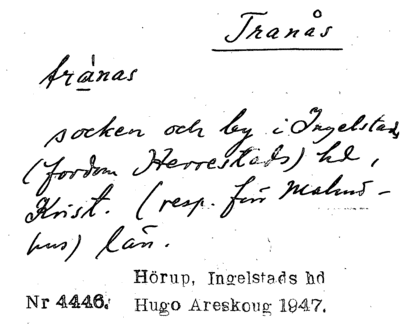 Tranås
tránas
socken och by i Ingelstads
(fordom Herrestads) hd,
Krist. (resp. för Malmö-
hus) län.
Hörup, Ingelstads hd
Nr 4446. Hugo Areskoug 1947.